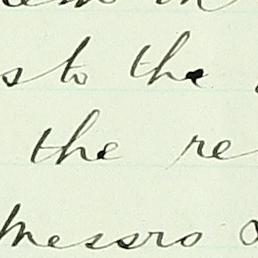 s to the
the re
Messrs